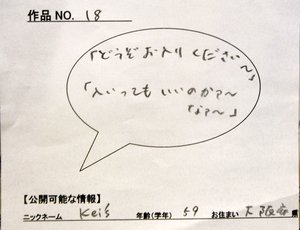 作品NO. 18
「どうぞお入りください〜」
「入いってもいいのかァ〜
なァ〜」
【公開可能な情報】
ニックネーム Kei's 年齢(学年) 59 お住まい 大阪府 県